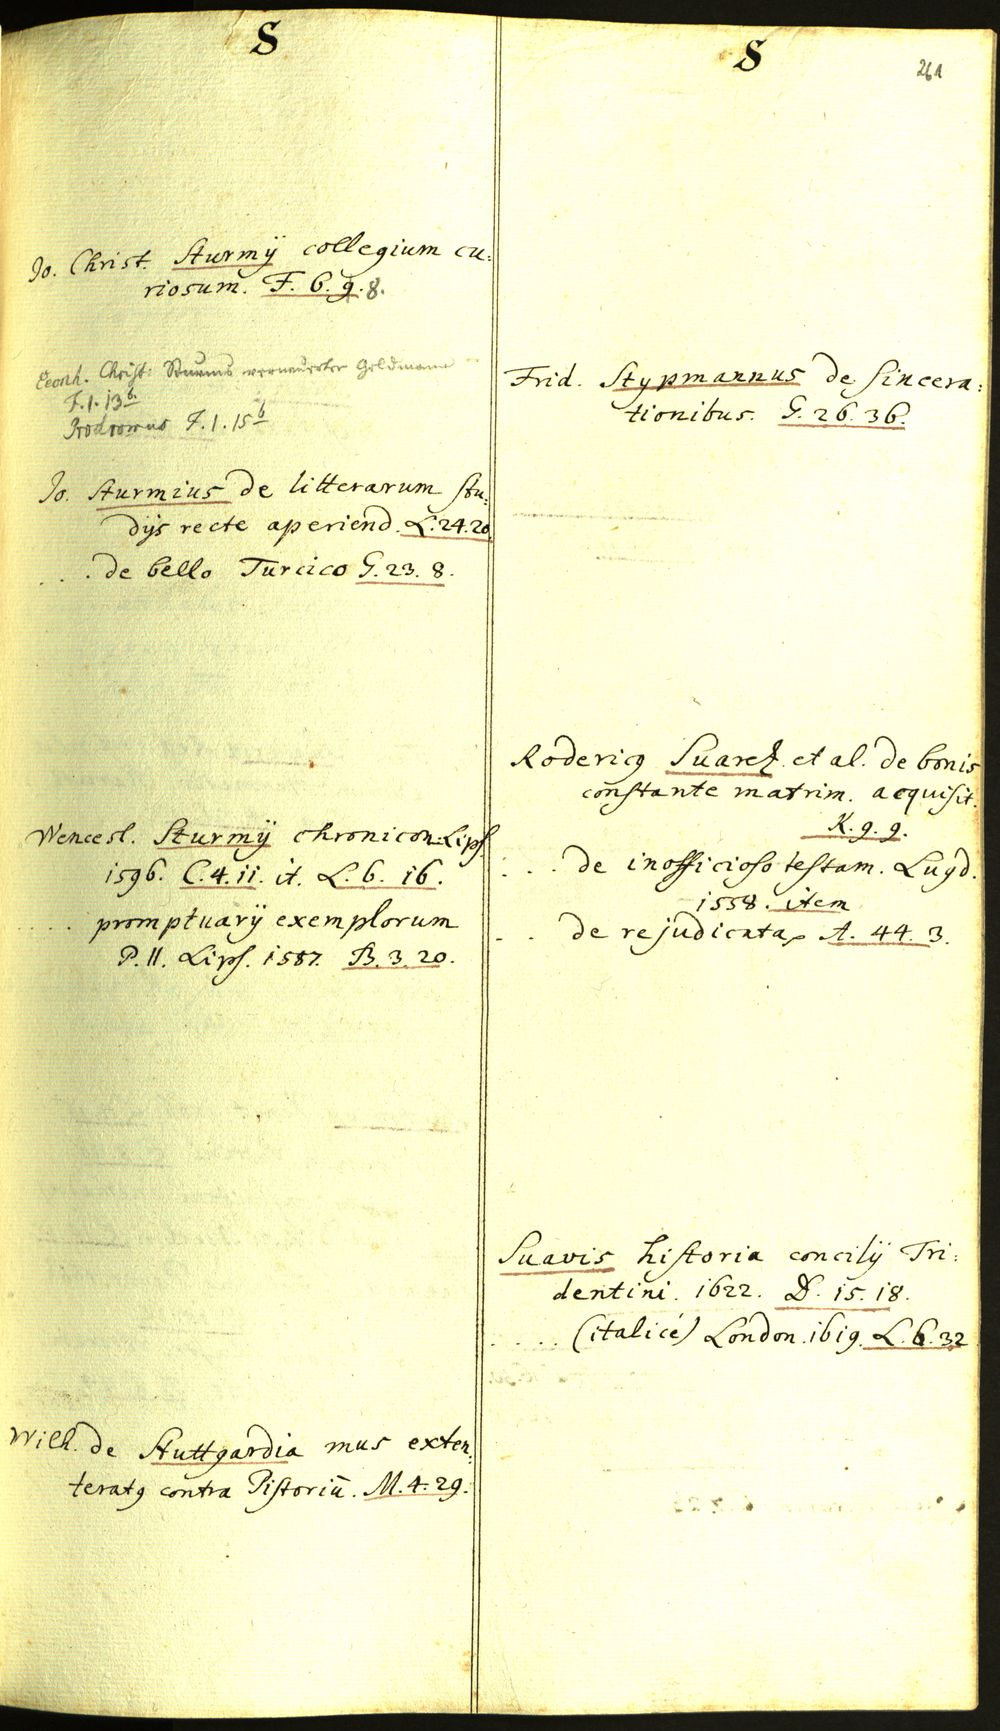 S
Jo. Christ. Sturmij collegium cu:
riosum. F. 6. 9. 8.
Leonh. Christ: Sturms verneuerter Goldmann
F. 1. 13b.
Prodromus F. 1. 15b
Jo. Sturmius de litterarum stu:
dijs recte aperiend. L. 24. 20
. . . de bello Turcico G. 23. 8.
Wencesl. Sturmij chronicon. Lips.
1596. C. 4. 11. it. L. 6. 16.
. . . . promptuarij exemplorum
P. II. Lips. 1587. B. 3. 20.
Wilh. de Stuttgardia mus exten:
teratg contra Pistoriū. M. 4. 29.
S
261
Frid. Stypmannus de Sincera:
tionibus. G. 26. 36.
Roderic9 Suarez et al. de bonis
constante matrim. acquisit.
K. 9. 9.
. . . de inofficioso testam. Lugd.
1558. item
. . de re judicata A. 44. 3.
Suavis historia concilij Tri:
dentini. 1622. D. 15. 18.
. . . . (italicè) London. 1619. L. 6. 32